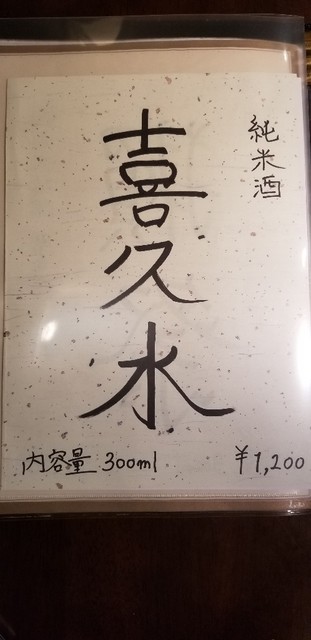 純米酒
喜久水
内容量 300ml
¥1,200